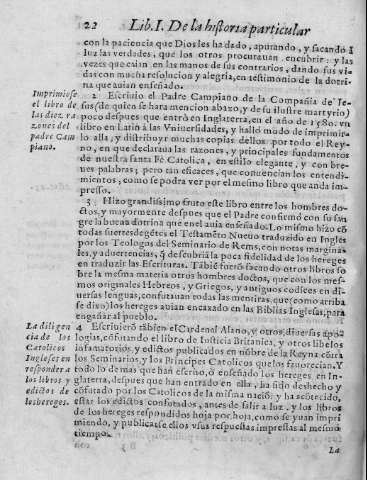 22 Lib. I. De la historia particular
con la paciencia que Dios les ha dado, apurando, y sacando a
luz las verdades, que los otros procurauan encubrir: y las
vezes que caian en las manos de sus contrarios, dando sus vi-
das con mucha resolucion y alegria, en testimonio de la dotri-
na que auian enseñado.
Imprimiose
el libro de
las diez ra
zones del
padre Cam
piano.
2 Escriuio el Padre Campiano de la Compañia de Ie-
sus (de quien se hara mencion abaxo, y de su ilustre martyrio)
poco despues que entrò en Inglaterra, en el año de 1580. vn
libro en Latin à las Vniuersidades, y hallò modo de imprimir
lo alla, y distribuyr muchas copias dellas por todo el Rey-
no, en que declaraua las razones, y principales fundamentos
de nuestra santa Fè Catolica, en estilo elegante, y con bre-
ues palabras; pero tan eficaces, que conuencian los entendi-
mientos, como se podra ver por el mesmo libro que anda im-
presso.
3 Hizo grandissimo fruto este libro entre los hombres do-
ctos, y mayormente despues que el Padre confirmò con su san
gre la buena dotrina que en el auia enseñado. Lo mismo hizo cõ
todas suertes de gẽtes el Testamẽto Nueuo traduzido en Inglès
por los Teologos del Seminario de Rems, con notas margina-
les, y aduertencias, q̃ descubria la poca fidelidad de los hereges
en traduzir las Escrituras. Tãbiẽ fuerõ sacando otros libros so
bre la mesma materia otros hombres doctos, que con los mes-
mos originales Hebreos, y Griegos, y antiguos codices en di-
uersas lenguas, confutauan todas las mentiras, que (como arriba
se dixo) los hereges auian encaxado en las Biblias Inglesas, para
engañar al pueblo.
La diligen
cia de los
Catolicos
Ingleses en
responder a
los libros y
edictos de
los hereges.
4 Escriuierõ tãbien el Cardenal Alano, y otros, diuersas apo-
logias, cõfutando el libro de Iusticia Britanica, y otros libelos
infamatorios y edictos publicados en nõbre de la Reyna cõtra
los Seminarios, y los Principes Catolicos que los fauorecian. Y
todo lo de mas que han escrito, ò enseñado los hereges en In-
glaterra, despues que han entrado en ella, ha sido deshecho y
cõfutado por los Catolicos de la misma naciõ: y ha acõtecido,
estar los edictos confutados, antes de salir a luz, y los libros
de los hereges respondidos hoja por hoja, como se yuan impri
miendo, y publicarse ellos y sus respuestas impressas al mesmo
tiempo.
La